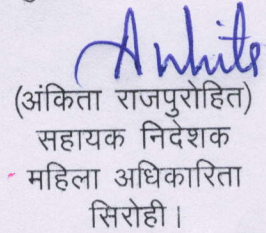 Ankita
(अंकिता राजपुरोहित)
सहायक निदेशक
महिला अधिकारिता
सिरोही।